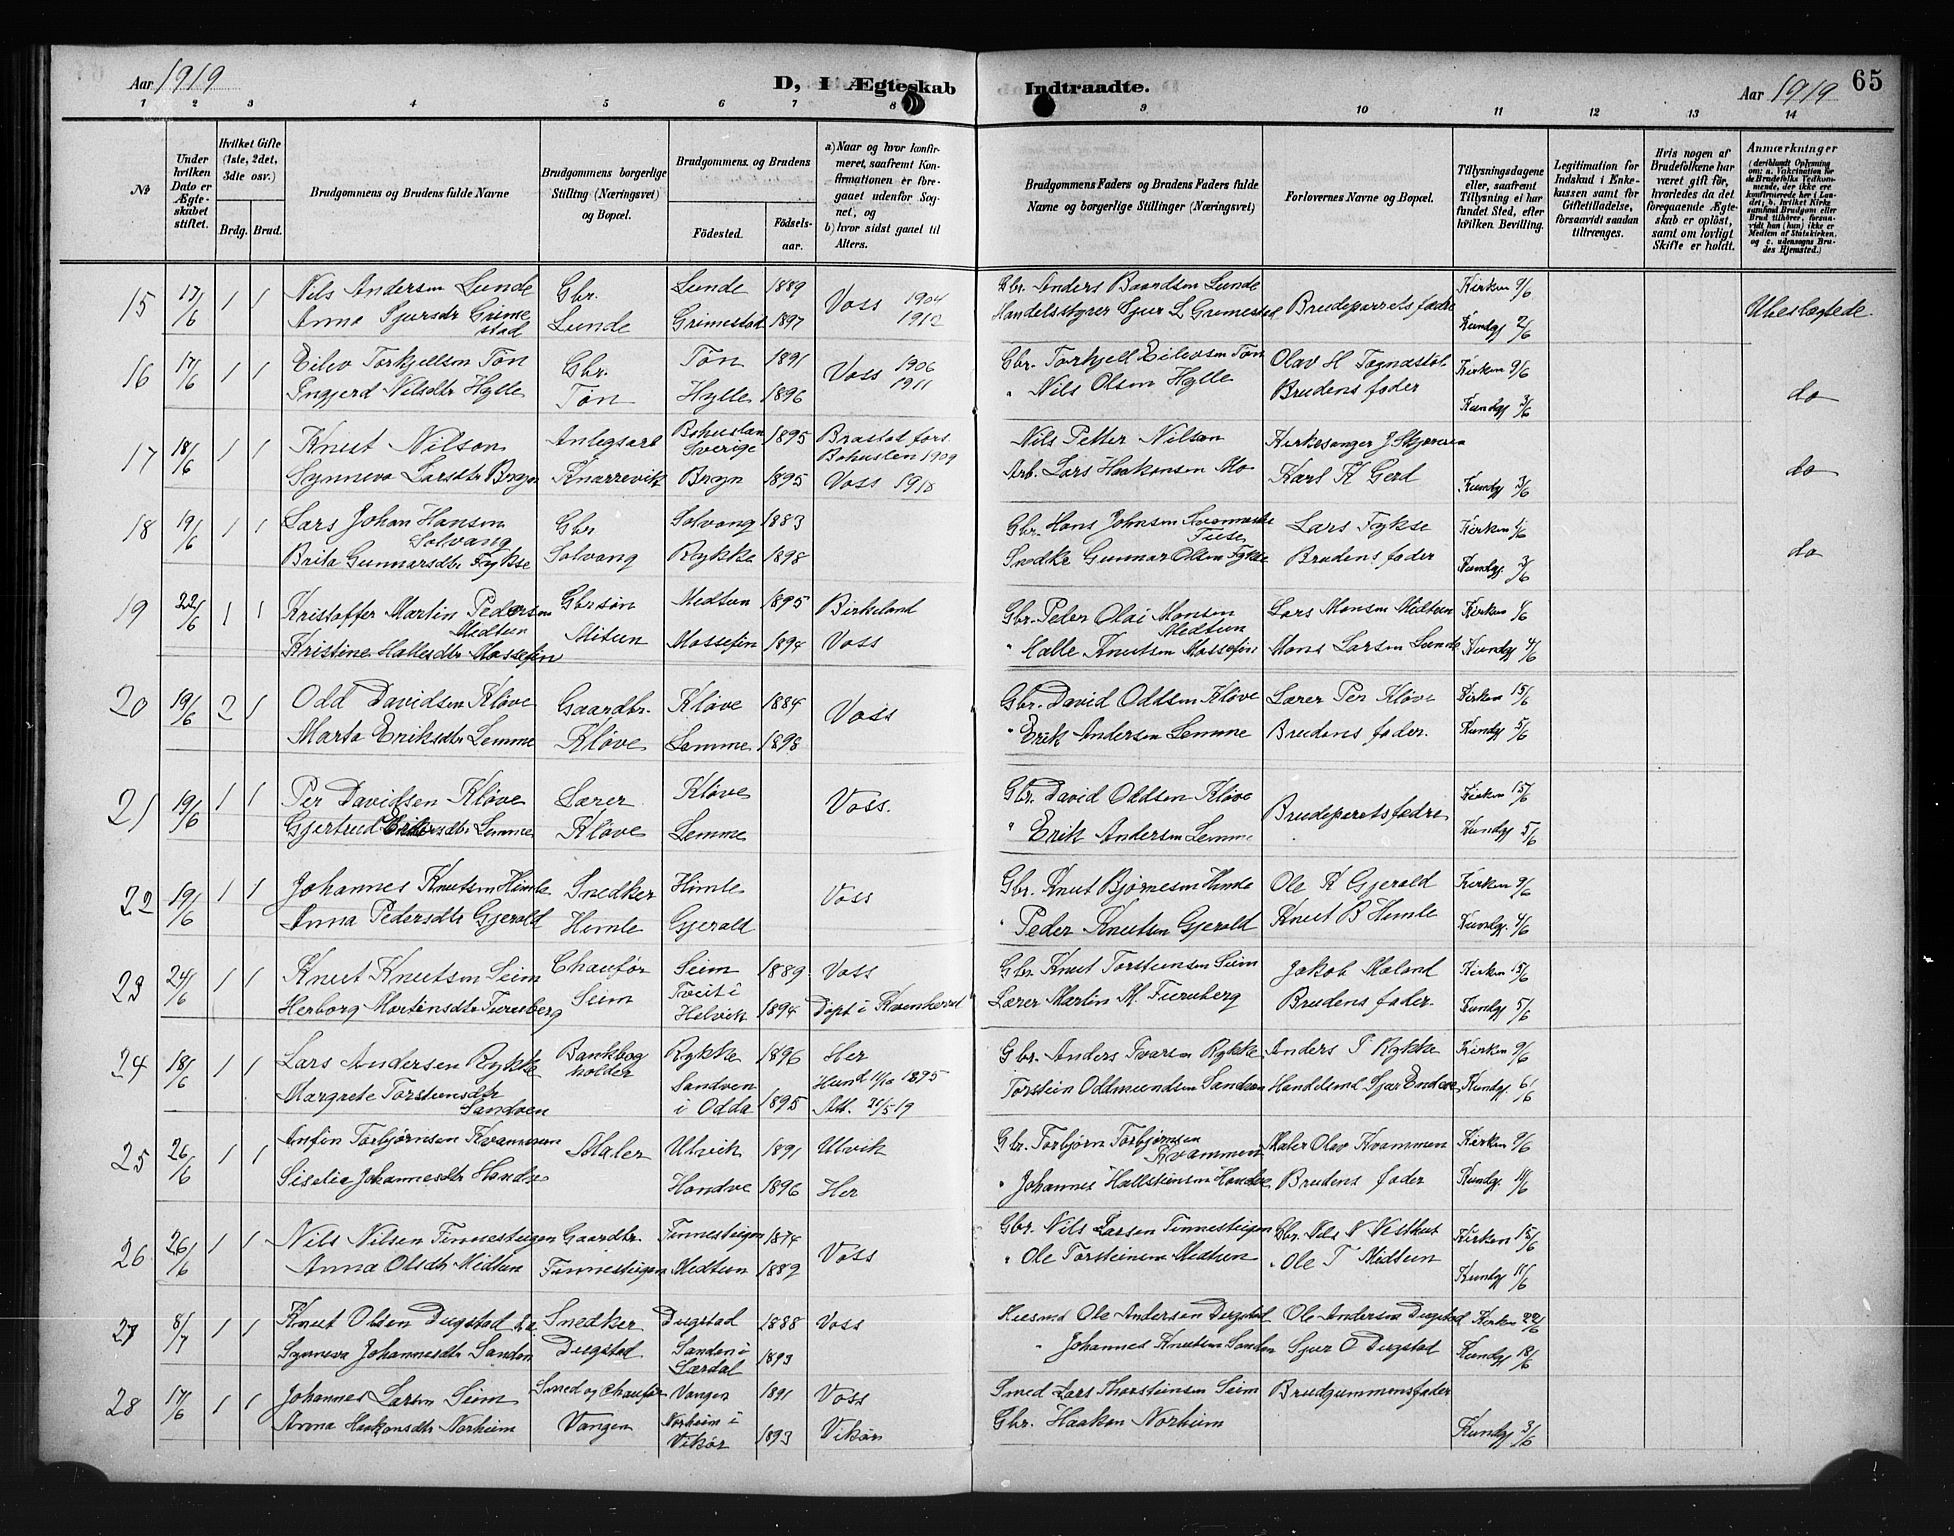 Aar 1919
D, I Ægteskab
Indtraadte.
Aar 1919
65
1 2 3 4 5 6 7 8 9 10 11 12 13 14
No
Under hvilken Dato er Ægteskabet stiftet.
Hvilket Gifte (1ste, 2det, 3die osv.)
Brdg. Brud.
Brudgommens og Brudens fulde Navne
Brudgommens borgerlige Stilling (Næringsvei) og Bopæl.
Brudgommens og Brudens
Födested.
Födselsaar.
a) Naar og hvor konfirmeret, saafremt Konfirmationen er foregaaet udenfor Sognet, og
b) hvor sidst gaaet til Alters.
Brudgommens Faders og Brudens Faders fulde Navne og borgerlige Stillinger (Næringsvei)
Forlovernes Navne og Bopæl.
Tillysningsdagene eller, saafremt Tillysning ei har fundet Sted, efter hvilken Bevilling.
Legitimation for Indskud i Enkekassen samt for Giftetilladelse, forsaavidt saadan tiltrænges.
Hvis nogen af Brudefolkene har været gift för, hvorledes da det foregaaende Ægteskab er oplöst, samt om lovligt Skifte er holdt.
Anmærkninger
15 17/6 1 1 Nils Andersen Lunde Gbr. Lunde 1889 Voss 1904 Gbr. Anders Baardsen Lunde Brudeparrets fædre Kirken 9/6 Ubeslægtede
Anna Sjursdtr Grimestad Lunde Grimestad 1897 1912 Handelsstyrer Sjur L Grimestad Kundgj 2/6
16 17/6 1 1 Eilev Torkjellsen Tøn Gbr. Tøn 1891 Voss 1906 Gbr. Torkjell Eilevsen Tøn Olav H Kirken 9/6 do
Ingjerd Nilsdtr Hylle Tøn Hylle 1896 1911 " Nils Olsen Hylle Brudens fader Kundgj 3/6
17 18/6 1 1 Knut Nilson Anlegsarb Bohuslen Sverige 1895 Bohuslen 1909 Nils Petter Nilson Kirkesanger do
Synneva Larsdtr Bryn Knarrevik Bryn 1895 Voss Arb. Lars Haakonsen Mo Karl K Gerd Kundgj 3/6
18 19/6 1 1 Lars Johan Hansen Solvang Gbr Solvang 1883 Gbr. Hans Johnsen Lars Fykse Kirken do
Brita Gunnarsdtr Fykse Solvang Rykke 1898 Snedke Gunnar Olsen Fykse Brudens fader Kundgj. 3/6
19 22/6 1 1 Kristoffer Martin Pedersen Midtun Gbr søn Medtun 1895 Birkeland Gbr. Peder Olai Monsen Medtun Lars Monsen Midtun Kirken
Kristine Hallesdtr Mossefin Mitun Mossefin 1894 Voss " Halle Knutsen Mossefin Mons Larsen Lunde Kundgj 4/6
20 19/6 2 1 Odd Davidsen Kløve Gaardbr. Kløve 1884 Voss Gbr. David Oddsen Kløve Lærer Per Kløve Kirken 15/6
Marta Eriksdtr Lemme Kløve Lemme 1898 " Erik Andersen Lemme Brudens fader. Kundgj 5/6
21 19/6 1 1 Per Davidsen Kløve Lærer Kløve Voss. Gbr. David Oddsen Kløve Brudeparets fædre Kirken 15/6
Gjertrud Eriksdtr Lemme Kløve Lemme " Erik Andersen Lemme Kundgj 5/6
22 19/6 1 1 Johannes Knutsen Himle Snedker Himle Voss Gbr. Knut Bjørnesen Himle Ole K Gjerald Kirken 9/6
Anna Pedersdtr Gjerald Himle Gjerald " Peder Knutsen Gjerald Knut B Himle Kundgj. 4/6
23 24/6 1 1 Knut Knutsen Seim Chaufør Seim 1889 Voss Gbr. Knut Torsteinsen Seim Jakob Moland Kirken 15/6
Herborg Martinsdtr Furuberg Seim Tveit i 1894 Døpt i Kvinherred Lærer Martin M. Furuberg Brudens fader. Kundgj 5/6
24 18/6 1 1 Lars Andersen Rykke Bankbogholder Rykke 1896 Her Gbr. Anders Ivarsen Rykke Anders I Rykke Kirken 9/6
Margrete Torsteinsdtr Sandven Sandven i Odda 1895 Torstein Oddmundsen Sandven Handelsmd Sjur Kundgj. 6/6
25 26/6 1 1 Anfin Torbjørnsen Kvammen Maler Ulvik 1891 Ulvik Gbr. Torbjørn Torbjørnsen Kvammen Maler Olav Kvammen Kirken 9/6
Siselia Johannesdtr Handve Handve 1896 Her " Johannes Hallsteinsen Handve Brudens fader Kundgj.
26 26/6 1 1 Nils Nilsen Finnesteigen Gaardbr. Finnesteigen 1874 Voss Gbr. Nils Larsen Finnesteigen Gbr. Nils N Vestrheim Kirken 15/6
Anna Olsdtr Midtun Finnesteigen Medtun 1889 " Ole Torsteinsen Medtun " Ole T Midtun Kundgj 11/6
27 8/7 1 1 Knut Olsen Dugstad Snedker Dugstad 1888 Voss Husmd Ole Andersen Dugstad Ole Andersen Dugstad Kirken 22/6
Synneva Johannesdtr Sanden Dugstad Sanden i Lærdal 1893 " Johannes Knutsen Sanden Sjur O Dugstad Kundgj 18/6
28 17/6 1 1 Johannes Larsen Seim Smed og Chaufør Vangen 1891 Voss Smed Lars Thorsteinsen Seim Brudgummens fader
Anna Haakonsdtr Norheim Vangen Norheim i Vikør 1893 Vikør Gbr. Haakon Norheim Kundgj 3/6